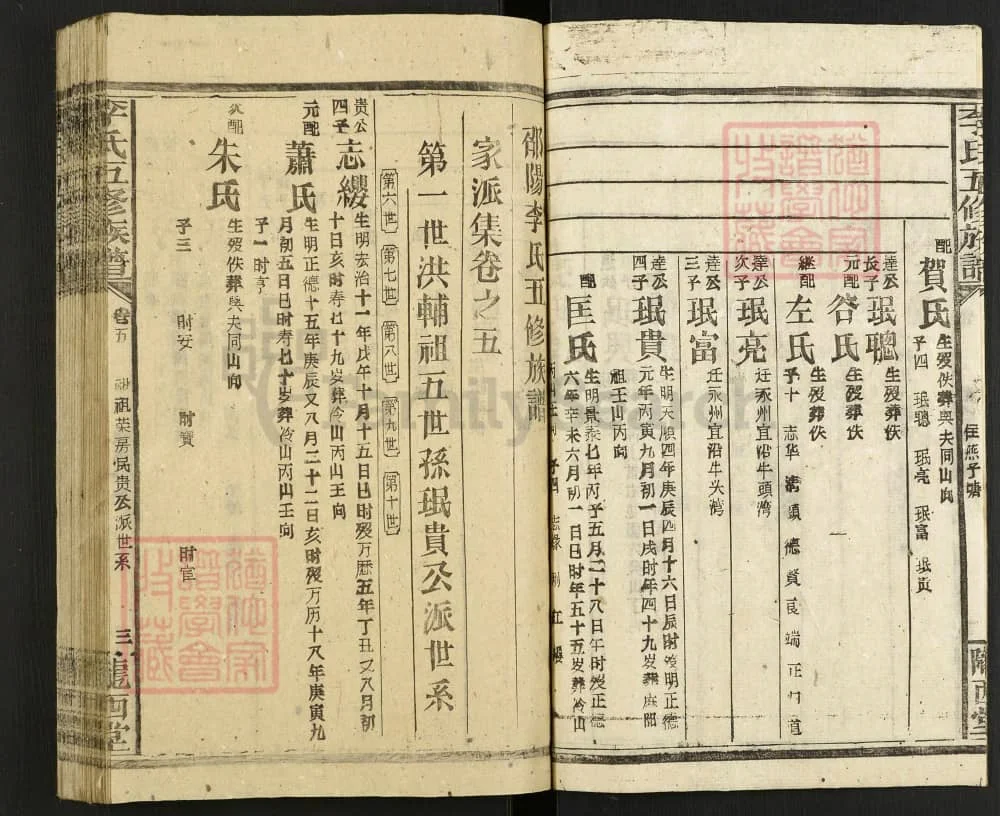 李氏五修族譜
隴西堂
配 賀氏 生歿佚葬與夫同山向
子四 珉聰 珉亮 珉富 珉貴
達公長子 珉聰 生歿葬佚
元配 谷氏 生歿葬佚
継配 左氏 生歿葬佚
子十 志华
達公次子 珉亮 迁永州宜沿牛頭湾
達公三子 珉富 迁永州宜沿牛头湾
達公四子 珉貴 生明天順四年庚辰四月十六日辰时歿明正德
元年丙寅九月初一日戌时年四十九岁葬
祖王山丙向
配 匡氏 生明景泰七年丙子五月二十八日午时歿正德
六年辛未六月初一日巳时年五十五岁葬冷山
邵陽李氏五修族譜
家派集卷之五
第一世洪輔祖五世孫珉貴公派世系
第六世 第七世 第八世 第九世 第十世
贵公四子 志纓 生明宏治十一年戊午十月十五日巳时歿万歷五年丁丑又八月初
十日亥时寿七十九岁葬冷山丙山壬向
元配 蕭氏 生明正德十五年庚辰又八月二十二日亥时歿万历十八年庚寅九
月朔五日巳时寿七十岁葬冷山丙山壬向
子一 时亨
次配 朱氏 生歿佚葬與夫同山向
子三 財安 財寶 財官
李氏五修族譜
卷五
祖荣房民贵公派世系
三
隴西堂